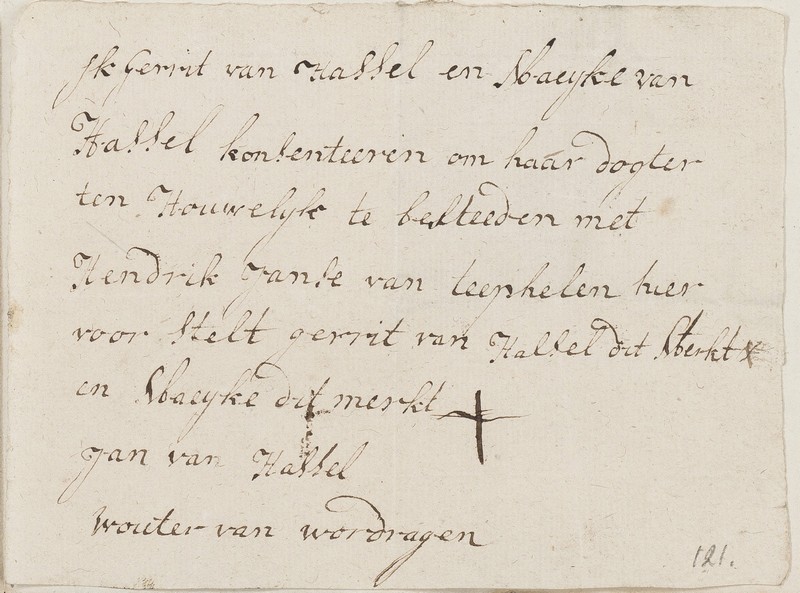 Jk Gerrit van Hassel en Maeyke van
Hassel konsenteeren om haar dogter
ten Houwelyk te besteeden met
Hendrik Janse van teephelen hier
voor stelt gerrit van Hassel dit Merkt x
en Maeyke dit merkt +
Jan van Hassel
Wouter van wordragen
121.